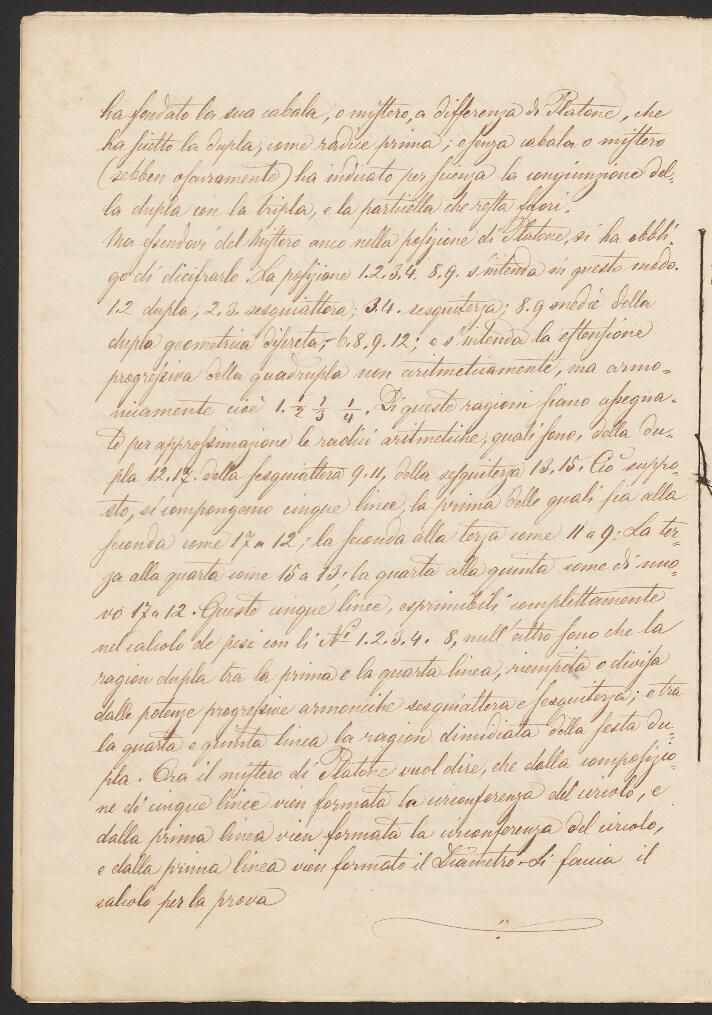 ha fondato la sua cabala, o mistero, a differenza di Platone, che
ha scelto la dupla, come radice prima; e senza cabala o mistero
(sebben oscuramente) ha indicato per scienza la congiunzione del-
la dupla con la tripla, e la particella che resta fuori.
Ma essendovi del Mistero anco nella posizione di Platone, si ha obbli-
go di dicifrarlo. La posizione 1.2.3.4. 8.9. s'intenda in questo modo.
1.2 dupla, 2.3. sesquialtera; 3.4. sesquiterza; 8.9 medie della
dupla geometrica discreta, - 6.8.9.12; e s'intenda la estensione
progressiva della quadrupla non aritmeticamente, ma armo-
nicamente cioè 1. 1/2 1/3 1/4. Di queste ragioni siano assegna-
te per approssimazione le radici aritmetiche, quali sono, della du-
pla 12.17. della sesquialtera 9.11, della sesquiterza 13.15. Ciò suppo-
sto, si compongano cinque linee, la prima delle quali sia alla
seconda come 17 a 12; la seconda alla terza come 11 a 9: La ter-
za alla quarta come 15 a 13; la quarta alla quinta come di nuo-
vo 17 a 12. Queste cinque linee, esprimibili complettamente
nel calcolo de pesi con li Ni 1.2.3.4. 8, null'altro sono che la
ragion dupla tra la prima e la quarta linea, riempita o divisa
dalle potenze progressive armoniche sesquialtera e sesquiterza; e tra
la quarta e quinta linea la ragion dimidiata della stessa du-
pla. Ora il mistero di Platone vuol dire, che dalla composizio-
ne di cinque linee vien formata la circonferenza del circolo, e
dalla prima linea vien formata la circonferenza del circolo,
e dalla prima linea vien formato il Diametro - Si faccia il
calcolo per la prova